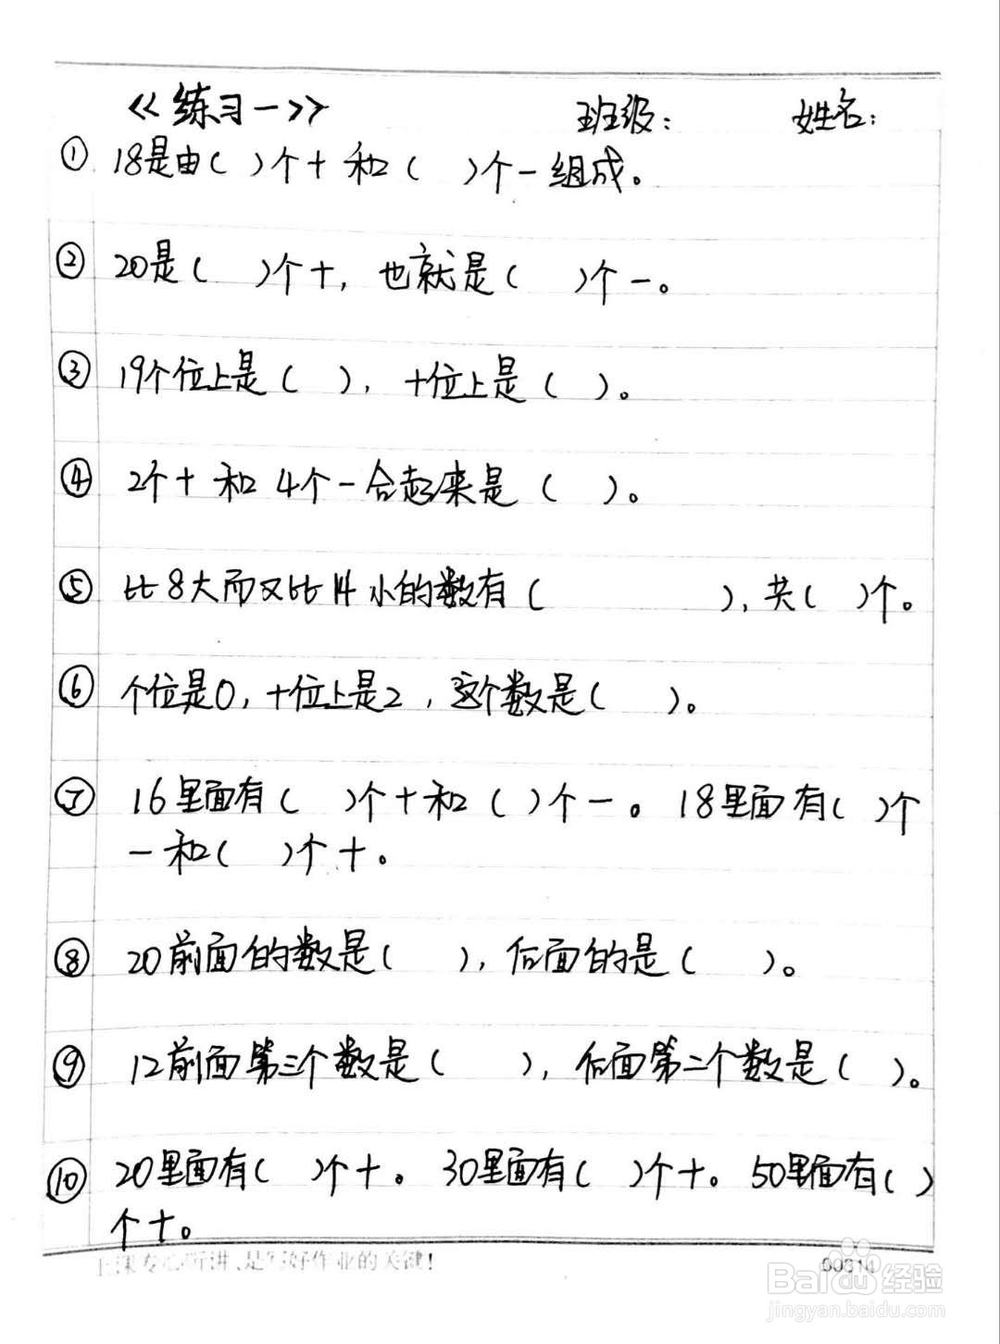 《练习一》 班级： 姓名：
① 18是由（ ）个十和（ ）个一组成。
② 20是（ ）个十，也就是（ ）个一。
③ 19个位上是（ ），十位上是（ ）。
④ 2个十和4个一合起来是（ ）。
⑤ 比8大而又比14小的数有（ ），共（ ）个。
⑥ 个位是0，十位上是2，这个数是（ ）。
⑦ 16里面有（ ）个十和（ ）个一。18里面有（ ）个
一和（ ）个十。
⑧ 20前面的数是（ ），后面的是（ ）。
⑨ 12前面第三个数是（ ），后面第二个数是（ ）。
⑩ 20里面有（ ）个十。30里面有（ ）个十。50里面有（ ）
个十。
上课专心听讲、是写好作业的关键！ 00614
Baidu经验
jingyan.baidu.com